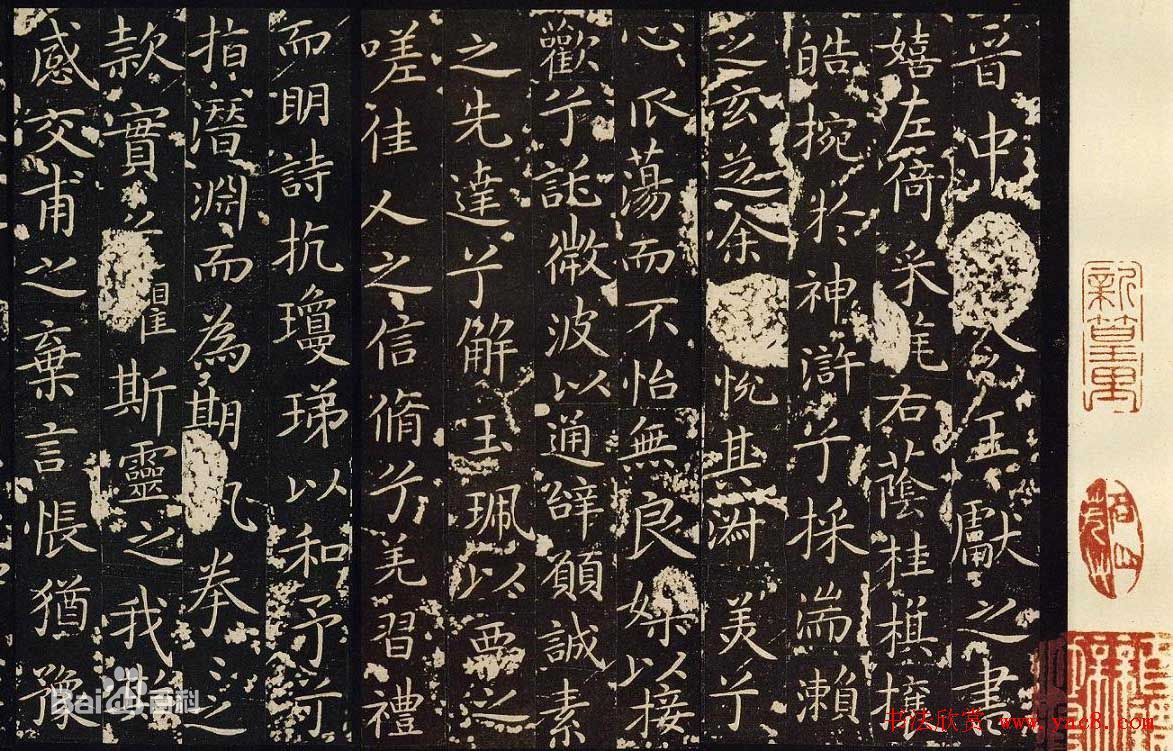 晉中令王獻之書
嬉左倚采旄右蔭桂旗攘
皓捥於神滸兮採湍瀨
之玄芝余悅其淑美兮
心振蕩而不怡無良媒以接
歡兮託微波以通辭願誠素
之先達兮解玉珮以要之
嗟佳人之信脩兮羌習禮
而明詩抗瓊珶以和予兮
指潛淵而為期拳之
款實兮懼斯靈之我欺
感交甫之棄言悵猶豫
Baidu百科
书法欣赏 www.yac8.com